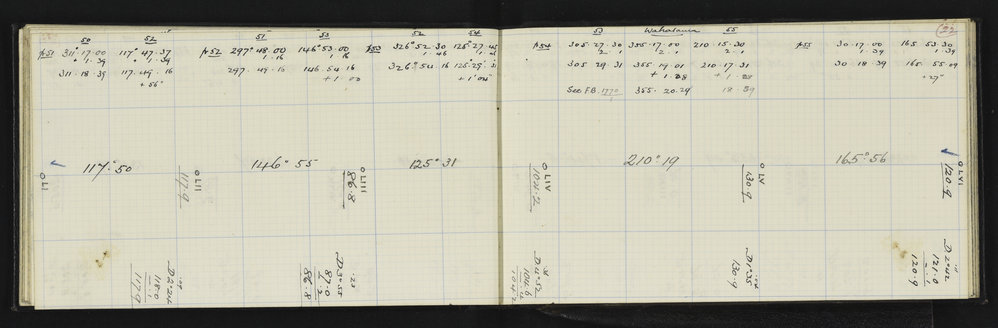 50 52
p51 311° 17.00 117° 47.37
+ 1.39 + 1.39
311.18.39 117.49.16
+ 55"
117° 50
51 53
p52 297° 48.00 146° 53.00
1.16 1.16
297.49.16 146.54.16
+ 1.00
146° 55
52 54
p53 326° 52.30 125° 27.45
1.46 1.46
326° 54.16 125° 29'.31
+ 1' 04"
125° 31
53 Wahatawa 55
p54 305.27.30 355.17.00 210.15.30
2.1 2.1 2.1
305.29.31 355.19.01 210.17.31
+ 1.28 + 1.28
See F.B. 1770 355.20.29 18.59
210° 19
p55 30.17.00 165.53.30
1.39 1.39
30.18.39 165.55.09
+ 27"
165° 56
22
O LII
117.9
O LIII
86.8
O LIV
104.2
O LV
130.9
O LVI
120.9
D 2° 24
118.0
.1
117.9
D 3° 55
87.0
.2
86.8
D 4° 52
104.6
104.2
D 1° 35
130.9
D 2° 42
121.0
.1
120.9